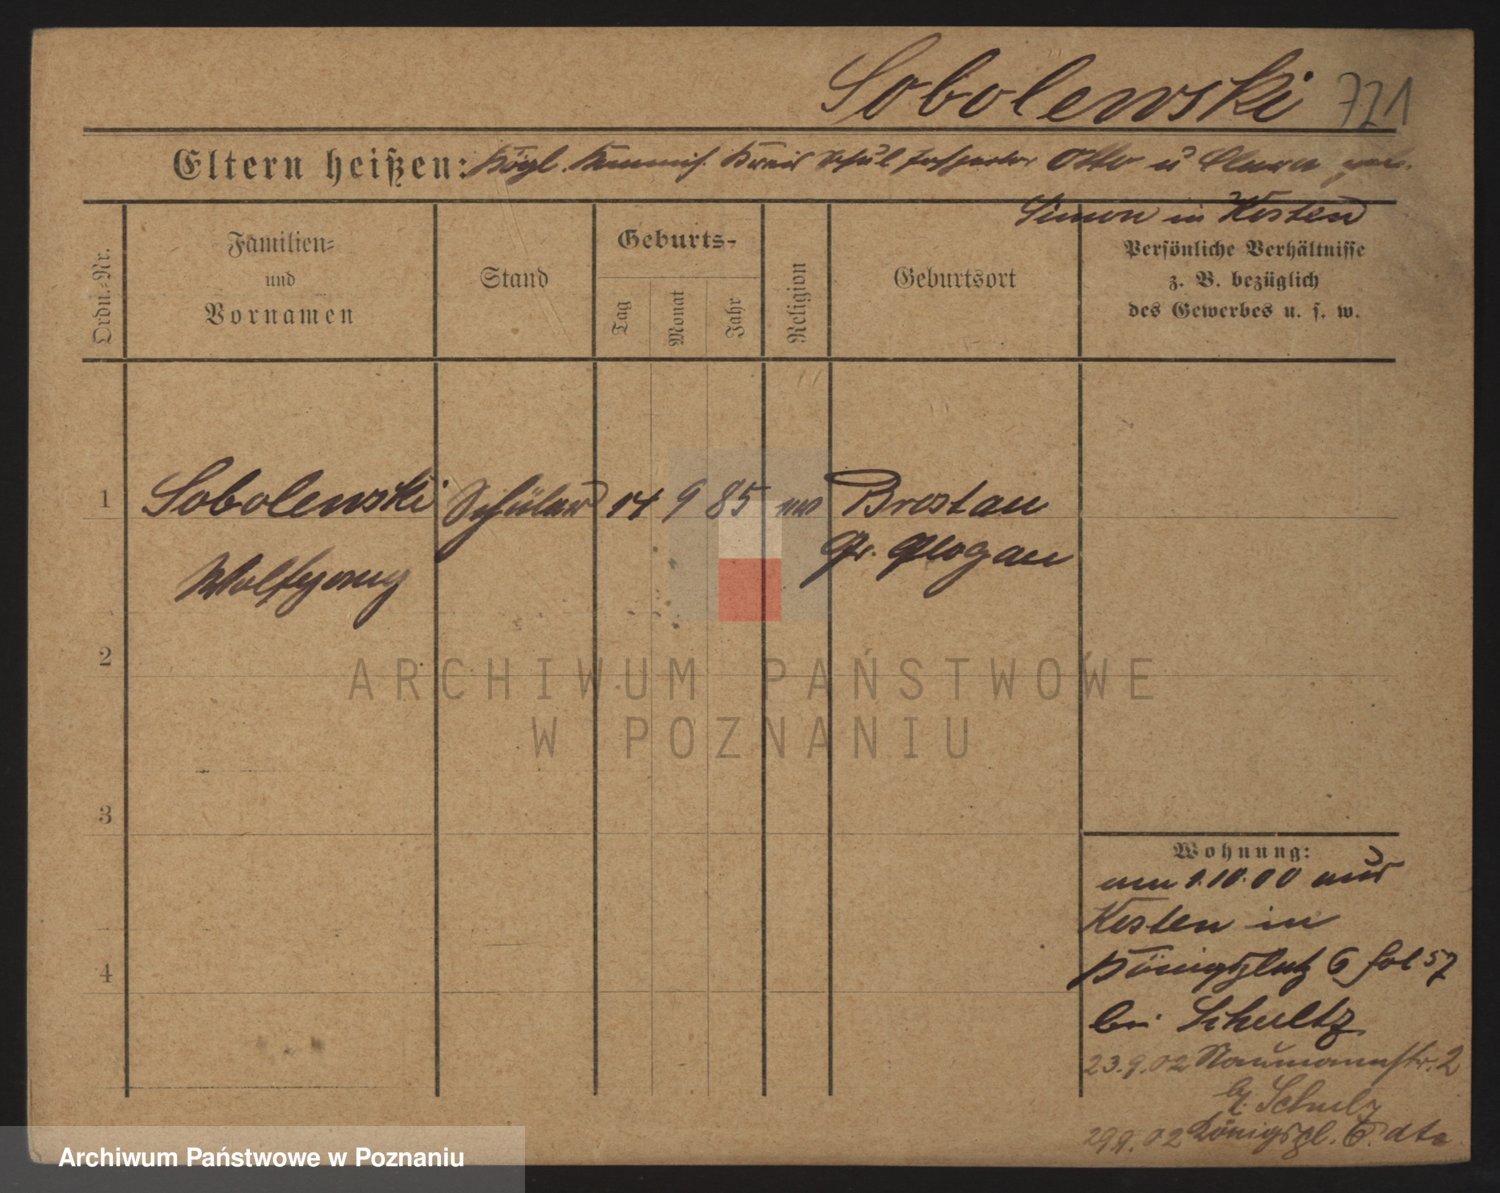 Sobolewski 721
Eltern heißen: Königl. Kommiss. Kreis Schul Inspector Otto u Clara geb.
Simon in Kosten
Ordn.-Nr.
Familien-
und
Vornamen
Stand
Geburts-
Tag
Monat
Jahr
Religion
Geburtsort
Persönliche Verhältnisse
z. B. bezüglich
des Gewerbes u. s. w.
1 Sobolewski Schüler 14 9 85 ev Brostau
Wolfgang Kr. Glogau
2
3
4
Wohnung:
am 1.10.00 aus
Kosten in
Königsplatz 6 fol 57
bei Schultz
23.9.02 Naumannstr. 2
b/ Schulz
29.9.02 Königspl. 6 dto
ARCHIWUM PAŃSTWOWE
W POZNANIU
Archiwum Państwowe w Poznaniu